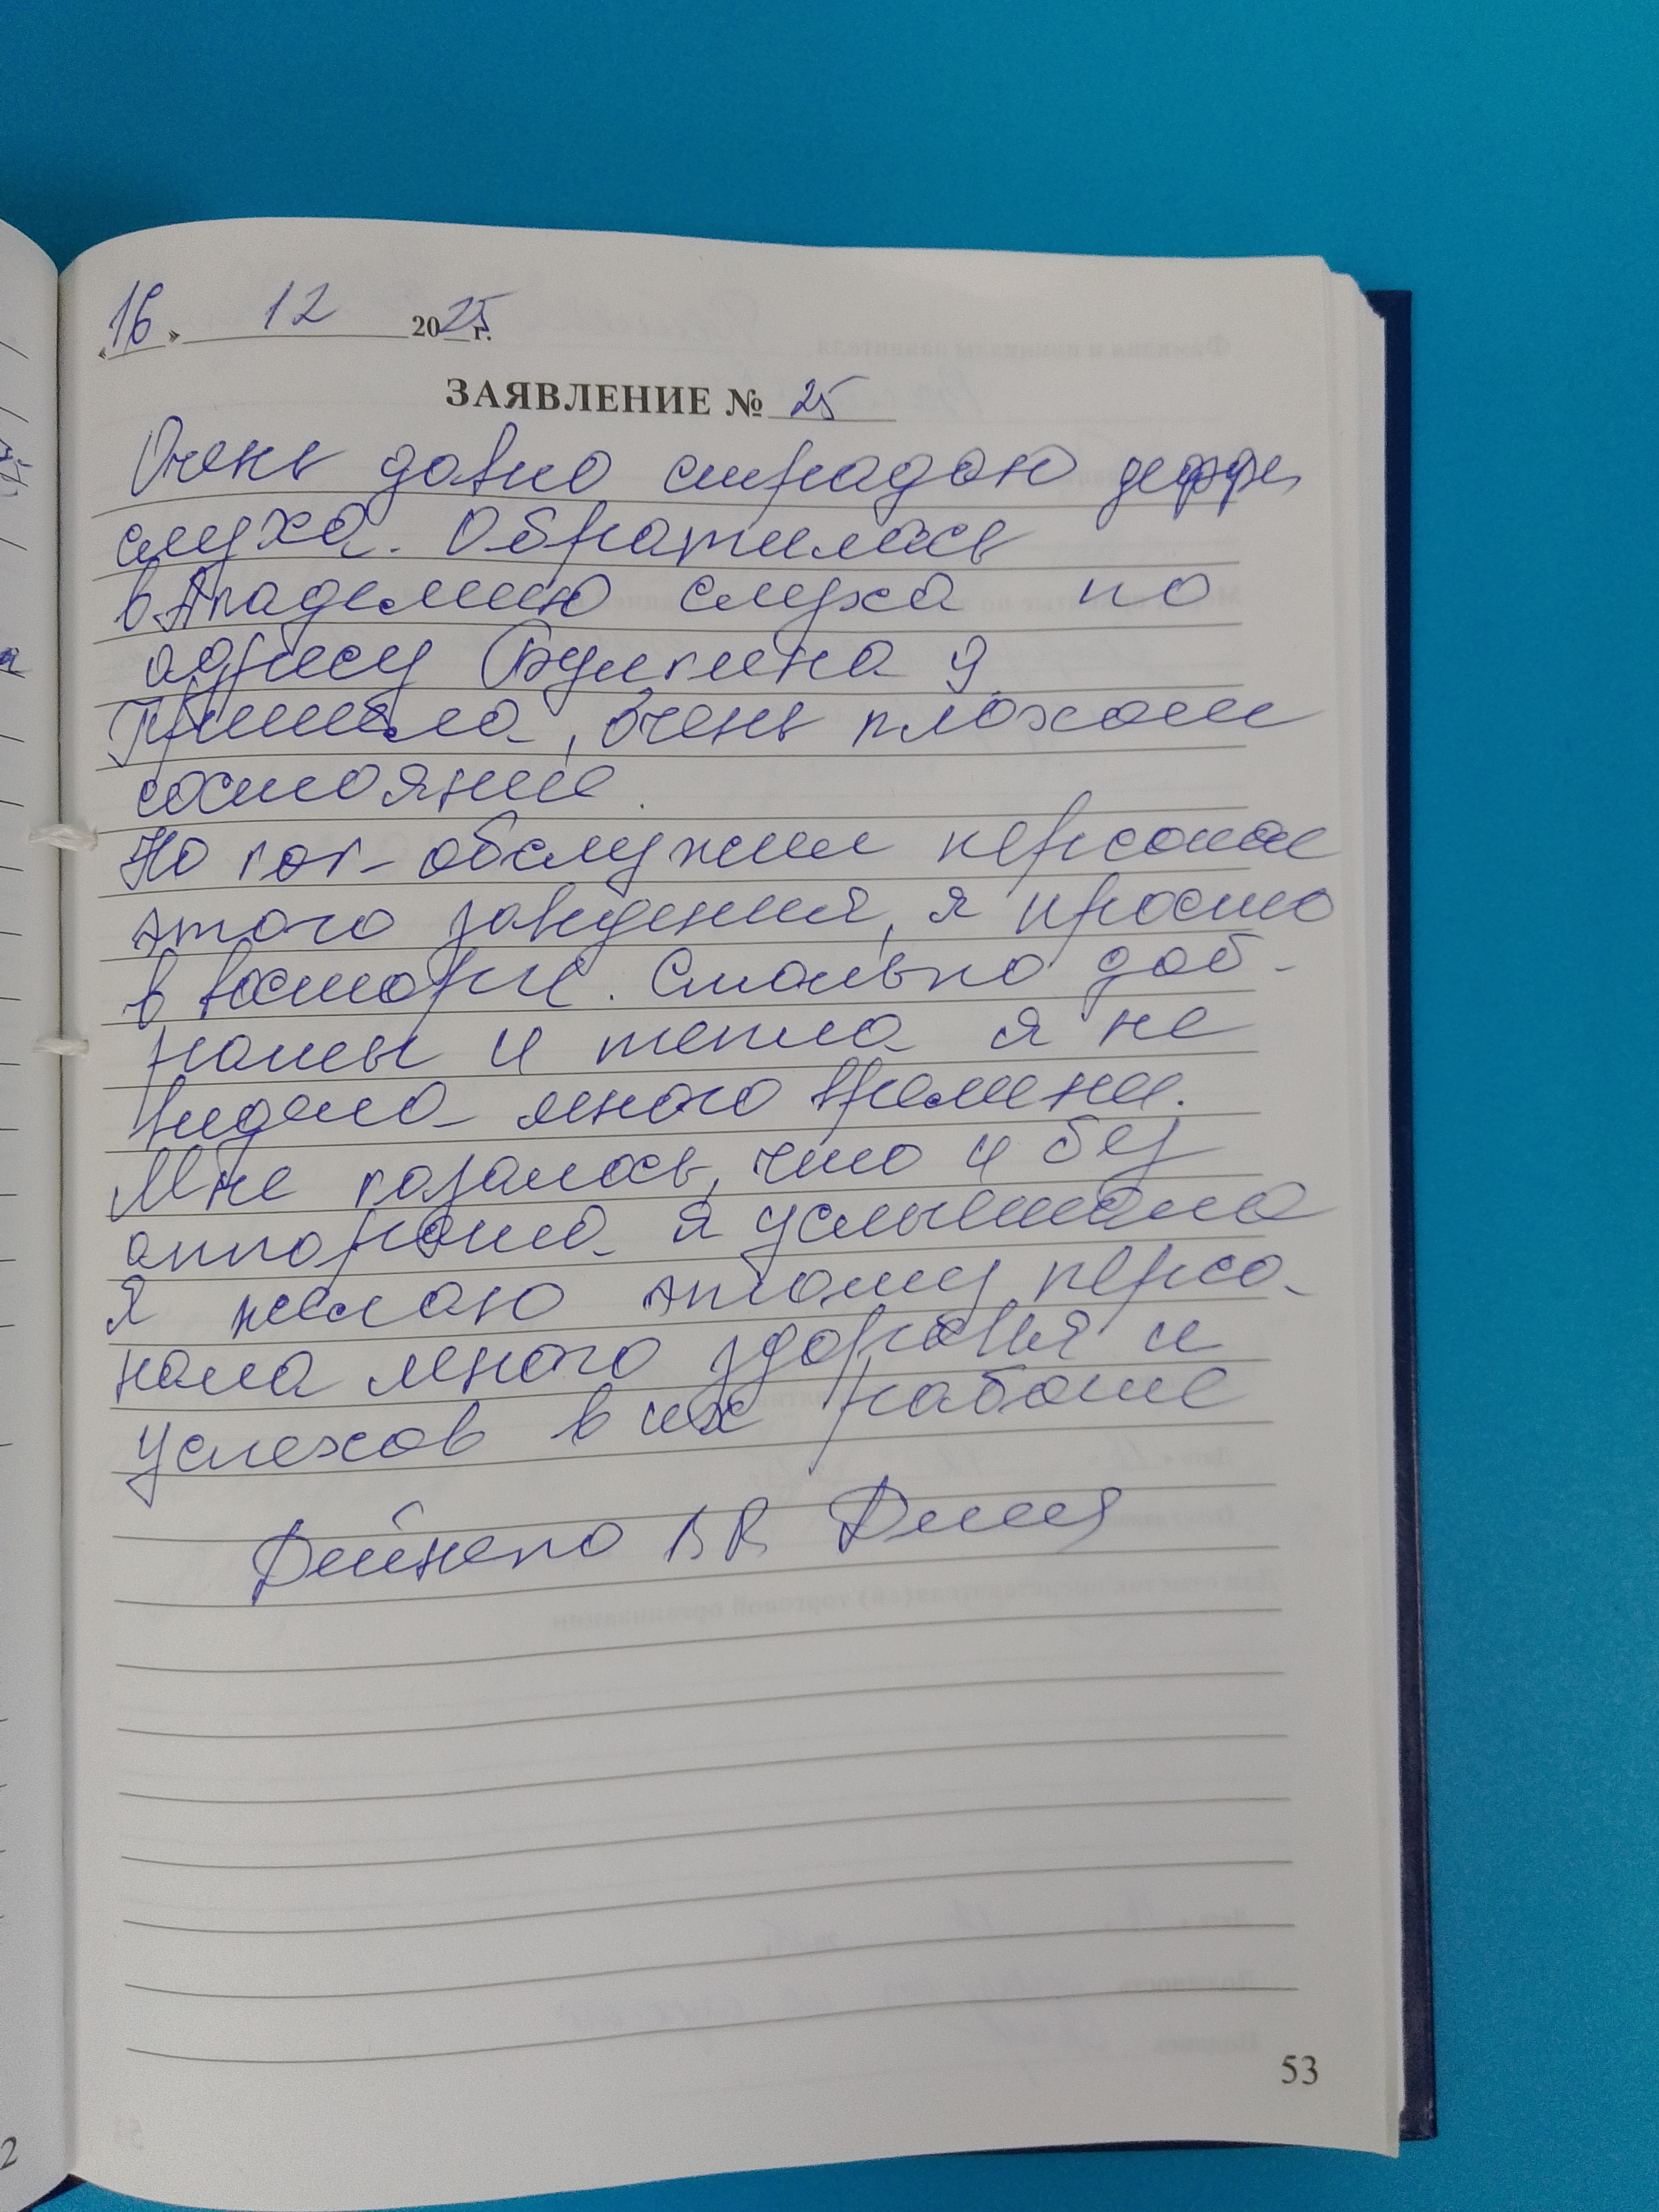 «16» 12 2025 г.
ЗАЯВЛЕНИЕ № 25
Очень давно страдаю дефф.
слуха. Обратилась
в Академию слуха по
адресу Бункина 9
Пришла, очень плохом
состояние.
Но как обслужил персонал
этого заведения, я просто
в восторге. Столько доб-
роты и тепла я не
видела много времени.
Мне казалось, что и без
аппарата я услышала
Я желаю этому персо-
нала много здоровья и
успехов в их работе
Дейнеко
53